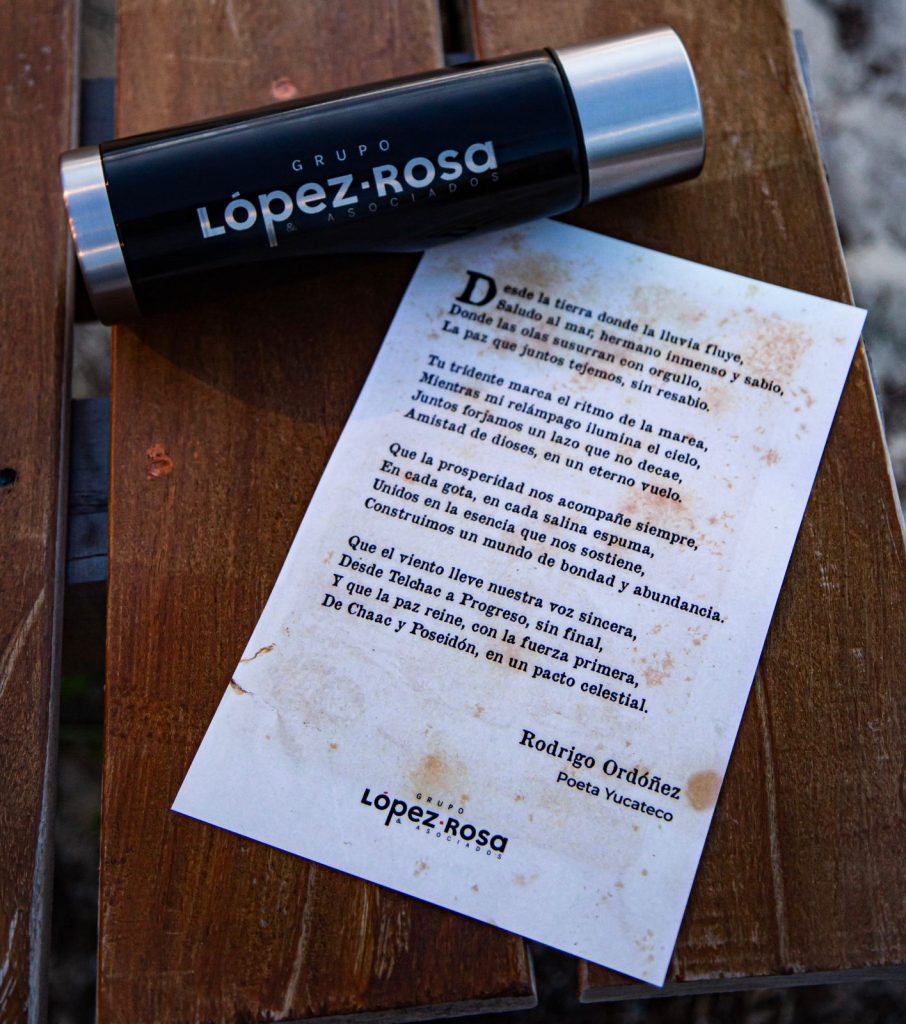 GRUPO
López·Rosa
& ASOCIADOS
Desde la tierra donde la lluvia fluye,
Saludo al mar, hermano inmenso y sabio,
Donde las olas susurran con orgullo,
La paz que juntos tejemos, sin resabio.
Tu tridente marca el ritmo de la marea,
Mientras mi relámpago ilumina el cielo,
Juntos forjamos un lazo que no decae,
Amistad de dioses, en un eterno vuelo.
Que la prosperidad nos acompañe siempre,
En cada gota, en cada salina espuma,
Unidos en la esencia que nos sostiene,
Construimos un mundo de bondad y abundancia.
Que el viento lleve nuestra voz sincera,
Desde Telchac a Progreso, sin final,
Y que la paz reine, con la fuerza primera,
De Chaac y Poseidón, en un pacto celestial.
Rodrigo Ordóñez
Poeta Yucateco
GRUPO
López·Rosa
& ASOCIADOS